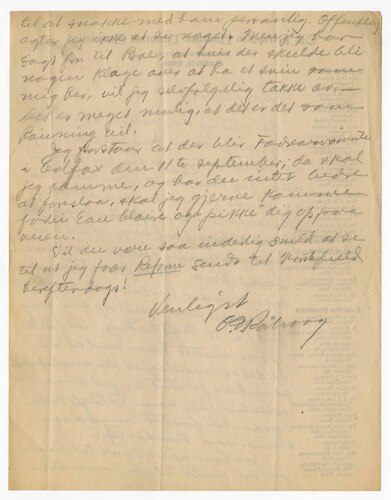 til at snakke med ham personlig. Offentlig
agter jeg ikke at si noget. Men jeg har
sagt fra til Boe, at hvis der skulde bli
nogen klage over at ha et svin som
mig her, vil jeg selvfølgelig takke av.
Det er meget mulig, at det er det som
Ronning vil.
Jeg forstaar at der blir Fadder
i Colfax den 11te september; da skal
jeg komme, og har du intet bedre
at foreslaa, skal jeg gjerne komme
forbi Eau Claire og pikke dig op paa
veien.
Vil du være saa inderlig snild at se
til at jeg faar Reform sendt til Northfield
herefterdags!
Venligst